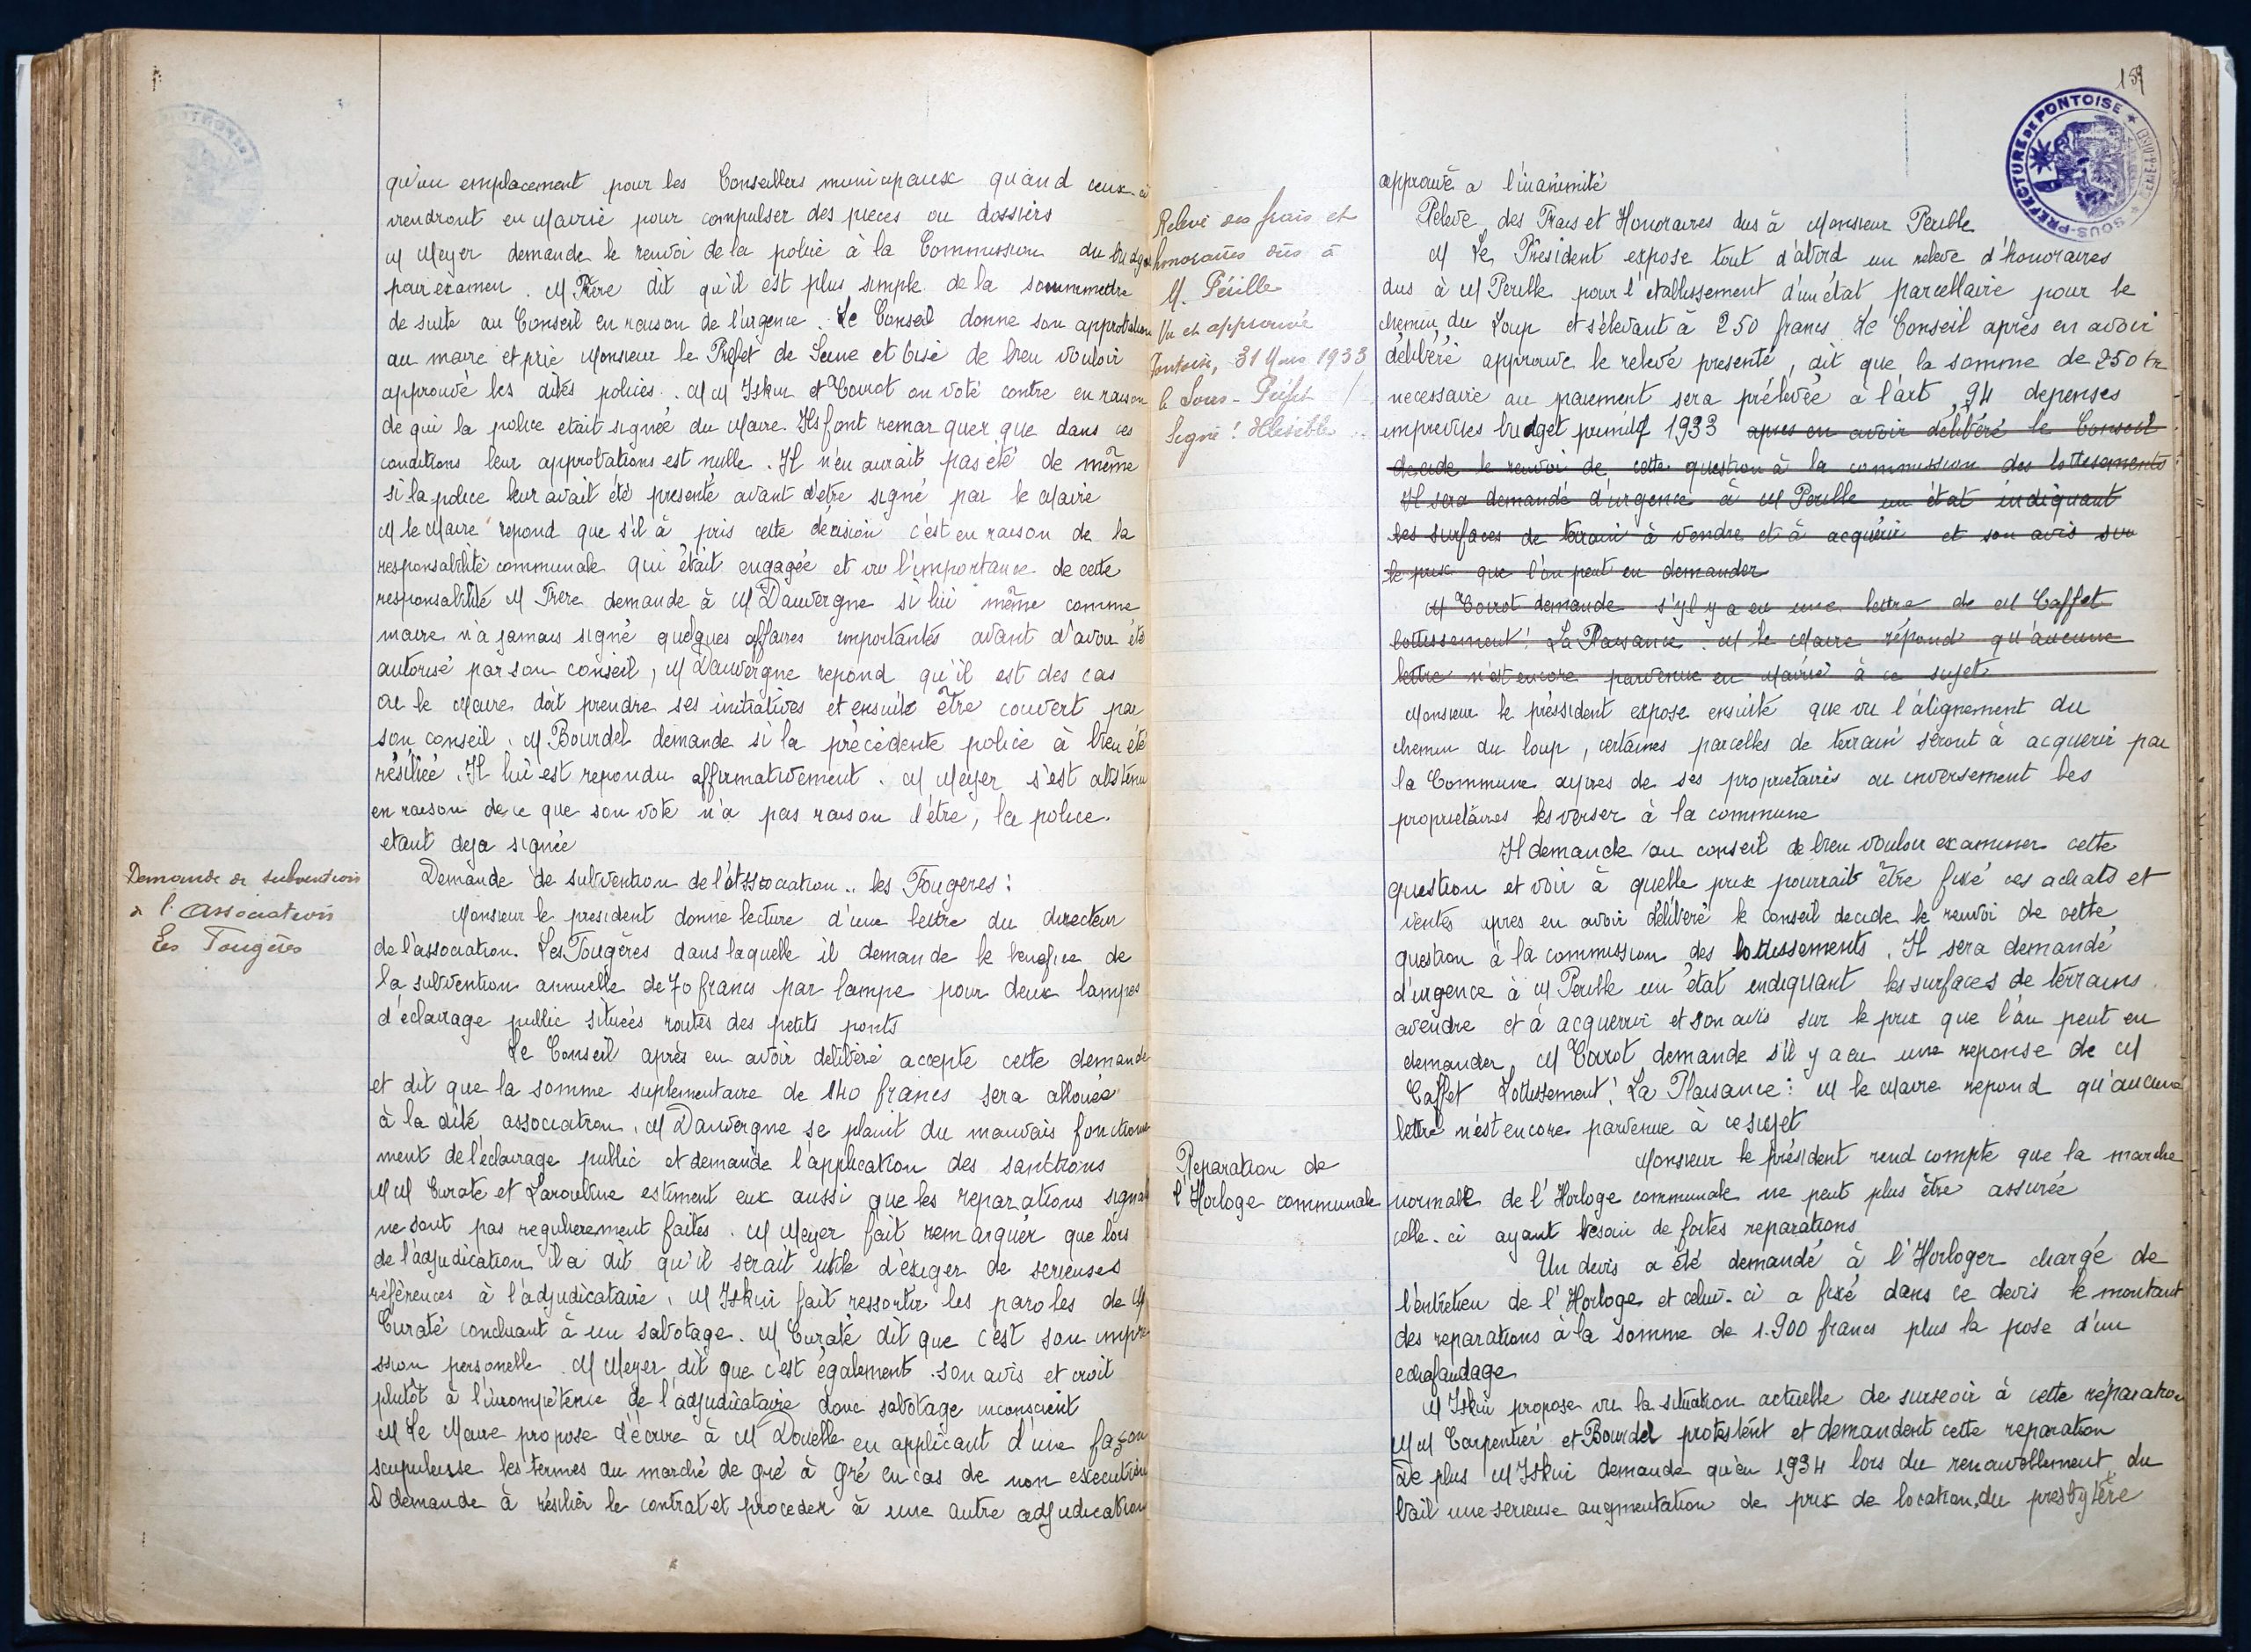 qu'un emplacement pour les Conseillers municipaux quand ceux-ci
viendront en Mairie pour compulser des pieces ou dossiers
M Meyer demande le renvoi de la police à la Commission du budget
pour examen. M Frère dit qu'il est plus simple de la soummettre
de suite au Conseil en raison de l'urgence. Le Conseil donne son approbation
au maire et prie Monsieur le Préfet de Seine et Oise de bien vouloir
approuvé les dités policés. M M Iskui et Coirot on voté contre en raison
de qui la police etait signée du Maire. Ils font remarquer que dans ces
conditions leur approbations est nulle. Il n'en aurait pas eté de même
si la police leur avait été presenté avant d'etre signé par le Maire
M le Maire repond que s'il à pris cette décision c'est en raison de la
responsabilité communale qui était engagée et vu l'importance de cette
responsabilité M Frere demande à M Dauvergne si lui même comme
maire n'a jamais signé quelques affaires importantés avant d'avoir été
autorisé par son conseil, M Dauvergne repond qu'il est des cas
ou le Maire doit prendre ses initiatives et ensuite être couvert par
son conseil. M Bourdel demande si la précédente police à bien été
résiliée. Il lui est repondu affirmativement. M Meyer s'est abstenu
en raison de ce que son vote n'a pas raison d'être, la police
etant deja signée
Demande de subvention
à l'Association
Les Fougères
Demande de subvention de l'Association " les Fougeres :
Monsieur le president donne lecture d'une lettre du directeur
de l'association Les Fougères dans laquelle il demande le benefice de
la subvention annuelle de 70 francs par lampe pour deux lampes
d'éclairage public situeés routes des petits ponts
Le Conseil après en avoir delibéré accepte cette demande
et dit que la somme suplementaire de 140 francs sera allouée
à la dité association. M Dauvergne se plaint du mauvais fonctionne
ment de l'éclairage public et demande l'application des sanctions
M M Curate et Laroutine estiment eux aussi que les reparations signal
ne sont pas regulierement faites. M Meyer fait remarquer que lors
de l'adjudication il a dit qu'il serait utile d'exiger de serieuses
références à l'adjudicataire. M Iskui fait ressortir les paroles de M
Curaté concluant à un sabotage. M Curaté dit que c'est son impre
ssion personelle. M Meyer dit que c'est également son avis et croit
plutôt à l'incompétence de l'adjudicataire donc sabotage inconscient
M Le Maire propose d'écrire à M Douelle en applicant d'une façon
scupuleuse les termes du marché de gré à gré en cas de non execution
Il demande à résilier le contrat et proceder à une autre adjudication
159
SOUS-PREFECTURE DE PONTOISE
approuvé a l'unanimité
Relevé des frais et
honoraires dus à
M. Péville
Vu et approuvé
Pontoise, 31 Mars 1933
le Sous-Préfet
Signé : Illisible
Releve des Frais et Honoraires dus à Monsieur Peville
M Le Président expose tout d'abord un relevé d'honoraires
dus à M Peville pour l'etablissement d'un état parcellaire pour le
chemin du Loup et s'élevant à 250 francs Le Conseil après en avoir
délibéré approuve le relevé presenté, dit que la somme de 250 fr
necessaire au paiement sera prélevée à l'art 94 depenses
imprevises budget primitif 1933 apres en avoir délibéré le Conseil
decide le renvoi de cette question à la commission des lotissements
Il sera demandé d'urgence à M Peville un état indiquant
les surfaces de terrain à vendre et à acquérir et son avis sur
le prix que l'on peut en demander
M Coirot demande s'yl y a eu une lettre de M Caffet
lotissement " La Plaisance. M le Maire répond qu'aucune
lettre n'est encore parvenue en Mairie à ce sujet
Monsieur le préssident expose ensuite que vu l'alignement du
chemin du loup, certaines parcelles de terrain seront à acquerir par
la Commune aupres de ses proprietaires ou inversement les
proprietaires les verser à la commune
Il demande au conseil de bien vouloir examiner cette
question et voir à quelle prix pourrait être fixé ces achats et
ventes apres en avoir délibéré le conseil decide le renvoi de cette
question à la commission des lotissements. Il sera demandé
d'urgence à M Peville un état indiquant les surfaces de terrains
avendre et à acquerrir et son avis sur le prix que l'on peut en
demander M Coirot demande s'il y a eu une reponse de M
Caffet Lotissement " La Plaisance : M le Maire repond qu'aucune
lettre n'est encore parvenue à ce sujet
Reparation de
l'Horloge communale
Monsieur le président rend compte que la marche
normale de l'Horloge communale ne peut plus être assurée
celle-ci ayant besoin de fortes reparations
Un devis a été demandé à l'Horloger chargé de
l'entretien de l'Horloge et celui-ci a fixé dans ce devis le montant
des reparations à la somme de 1.900 francs plus la pose d'un
echafaudage
M Iskui propose vu la situation actuelle de surseoir à cette réparation
M M Carpentier et Bourdel protestent et demandent cette reparation
De plus M Iskui demande qu'en 1934 lors du renouvellement du
bail une serieuse augmentation de prix de location du presbytère